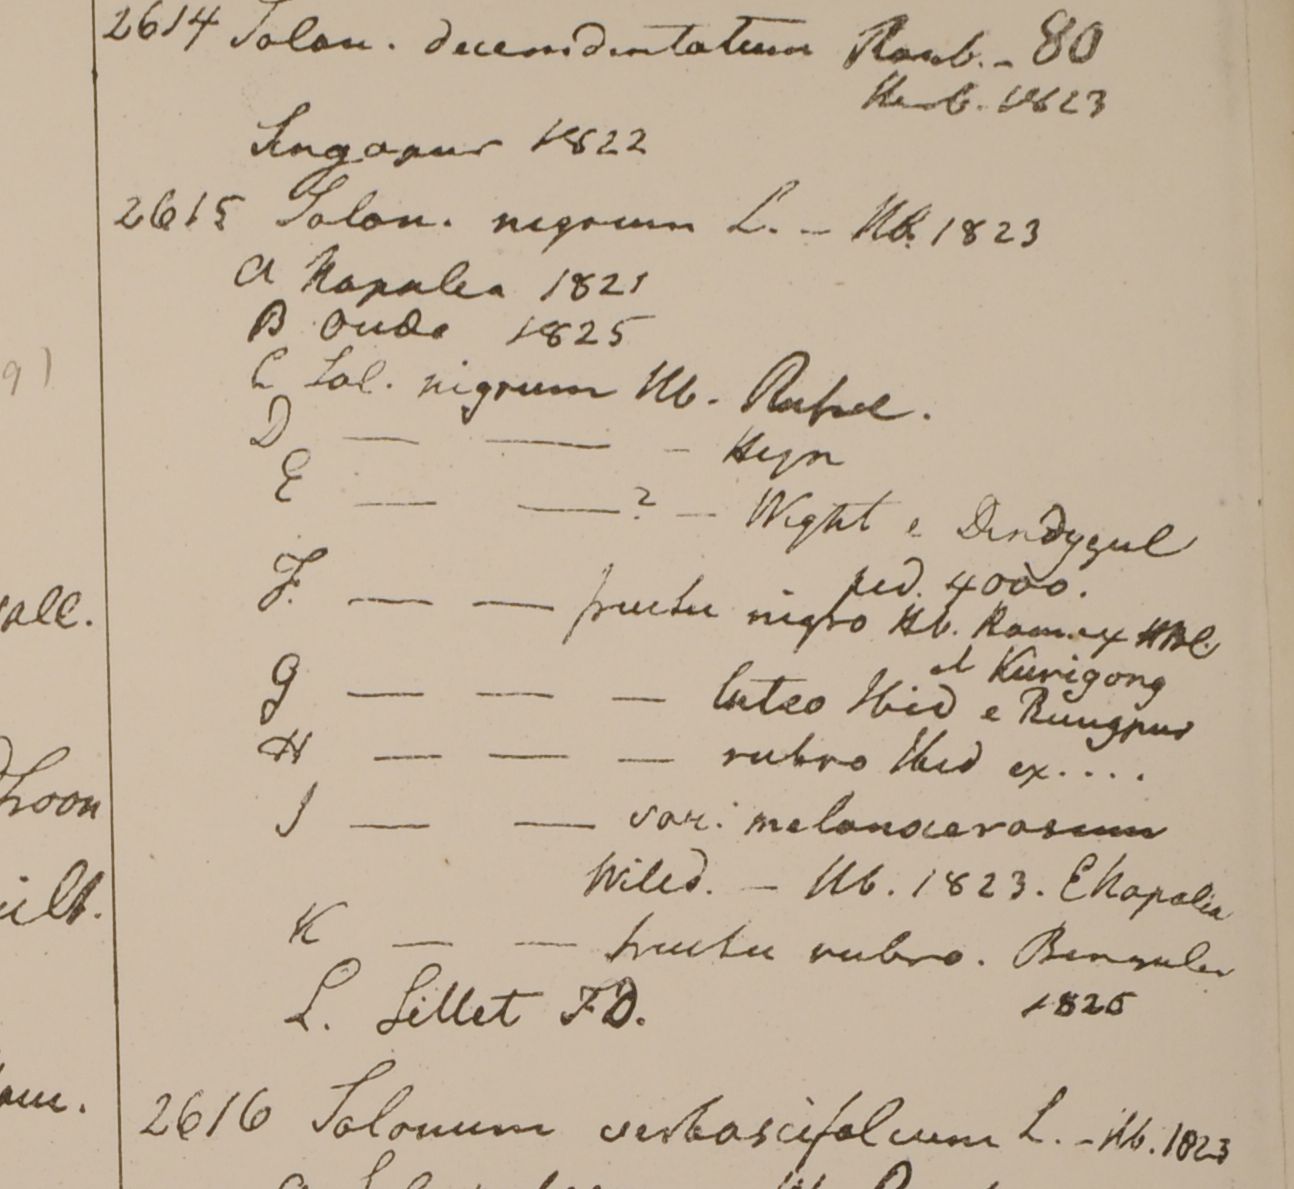 2614 Solan. decemdentatum Roxb. - 80
Herb. 1823
Singapur 1822
2615 Solan. nigrum L. - Hb. 1823
A Napalia 1821
B Oude 1825
C Sol. nigrum Hb. Russel.
D — — - Heyn
E — —? - Wight e Dindygul
ped. 4000.
F. — — fructu nigro Hb. Ham. ex HBC.
et Kurigong
G — — — luteo Ibid e Rungpur
H — — — rubro Ibid ex....
J — — var: melanocerasum
Willd. - Hb. 1823. E Napalia
K — — fructu rubro. Banguler
1825
L. Sillet FD.
2616 Solanum verbascifolium L. - Hb. 1823
91
all.
hoon
ilb.